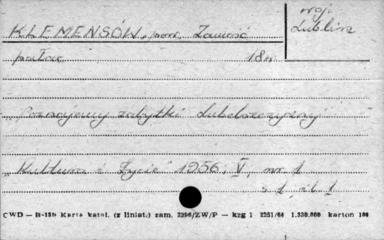 KLEMENSÓW, pow. Zamość
woj.
Lublin
pałac 18w.
„Poznajemy zabytki Lubelszczyzny”
„Kultura i Życie” 1956, V, nr. 1
s. 1, il. 1
CWD — B-15b Karta katal. (z liniat.) zam. 2296/ZW/P — kzg 1 2251/66 1.530.000 karton 180